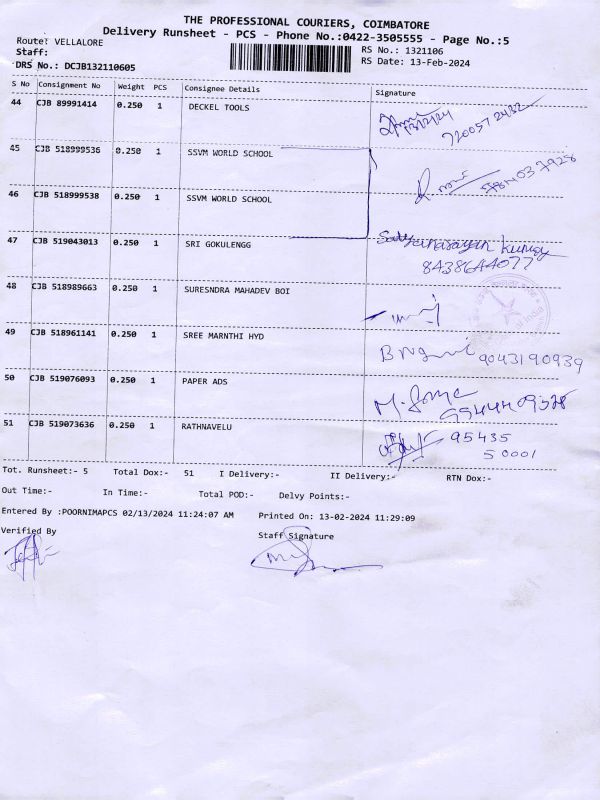 THE PROFESSIONAL COURIERS, COIMBATORE
Delivery Runsheet - PCS - Phone No.:0422-3505555 - Page No.:5
Route: VELLALORE
RS No.: 1321106
Staff:
RS Date: 13-Feb-2024
DRS No.: DCJB132110605
S No Consignment No Weight PCS Consignee Details Signature
44 CJB 89991414 0.250 1 DECKEL TOOLS 13/2/24 720057 2432
45 CJB 518999536 0.250 1 SSVM WORLD SCHOOL
46 CJB 518999538 0.250 1 SSVM WORLD SCHOOL
47 CJB 519043013 0.250 1 SRI GOKULENGG
48 CJB 518989663 0.250 1 SURESNDRA MAHADEV BOI
49 CJB 518961141 0.250 1 SREE MARNTHI HYD 9043190939
50 CJB 519076093 0.250 1 PAPER ADS
51 CJB 519073636 0.250 1 RATHNAVELU 95435
50001
Tot. Runsheet:- 5 Total Dox:- 51 I Delivery:- II Delivery:- RTN Dox:-
Out Time:- In Time:- Total POD:- Delvy Points:-
Entered By :POORNIMAPCS 02/13/2024 11:24:07 AM Printed On: 13-02-2024 11:29:09
Verified By Staff Signature